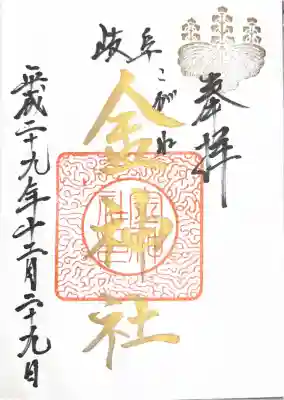 奉拝
岐阜こがね
金神社
平成二十九年十二月二十九日